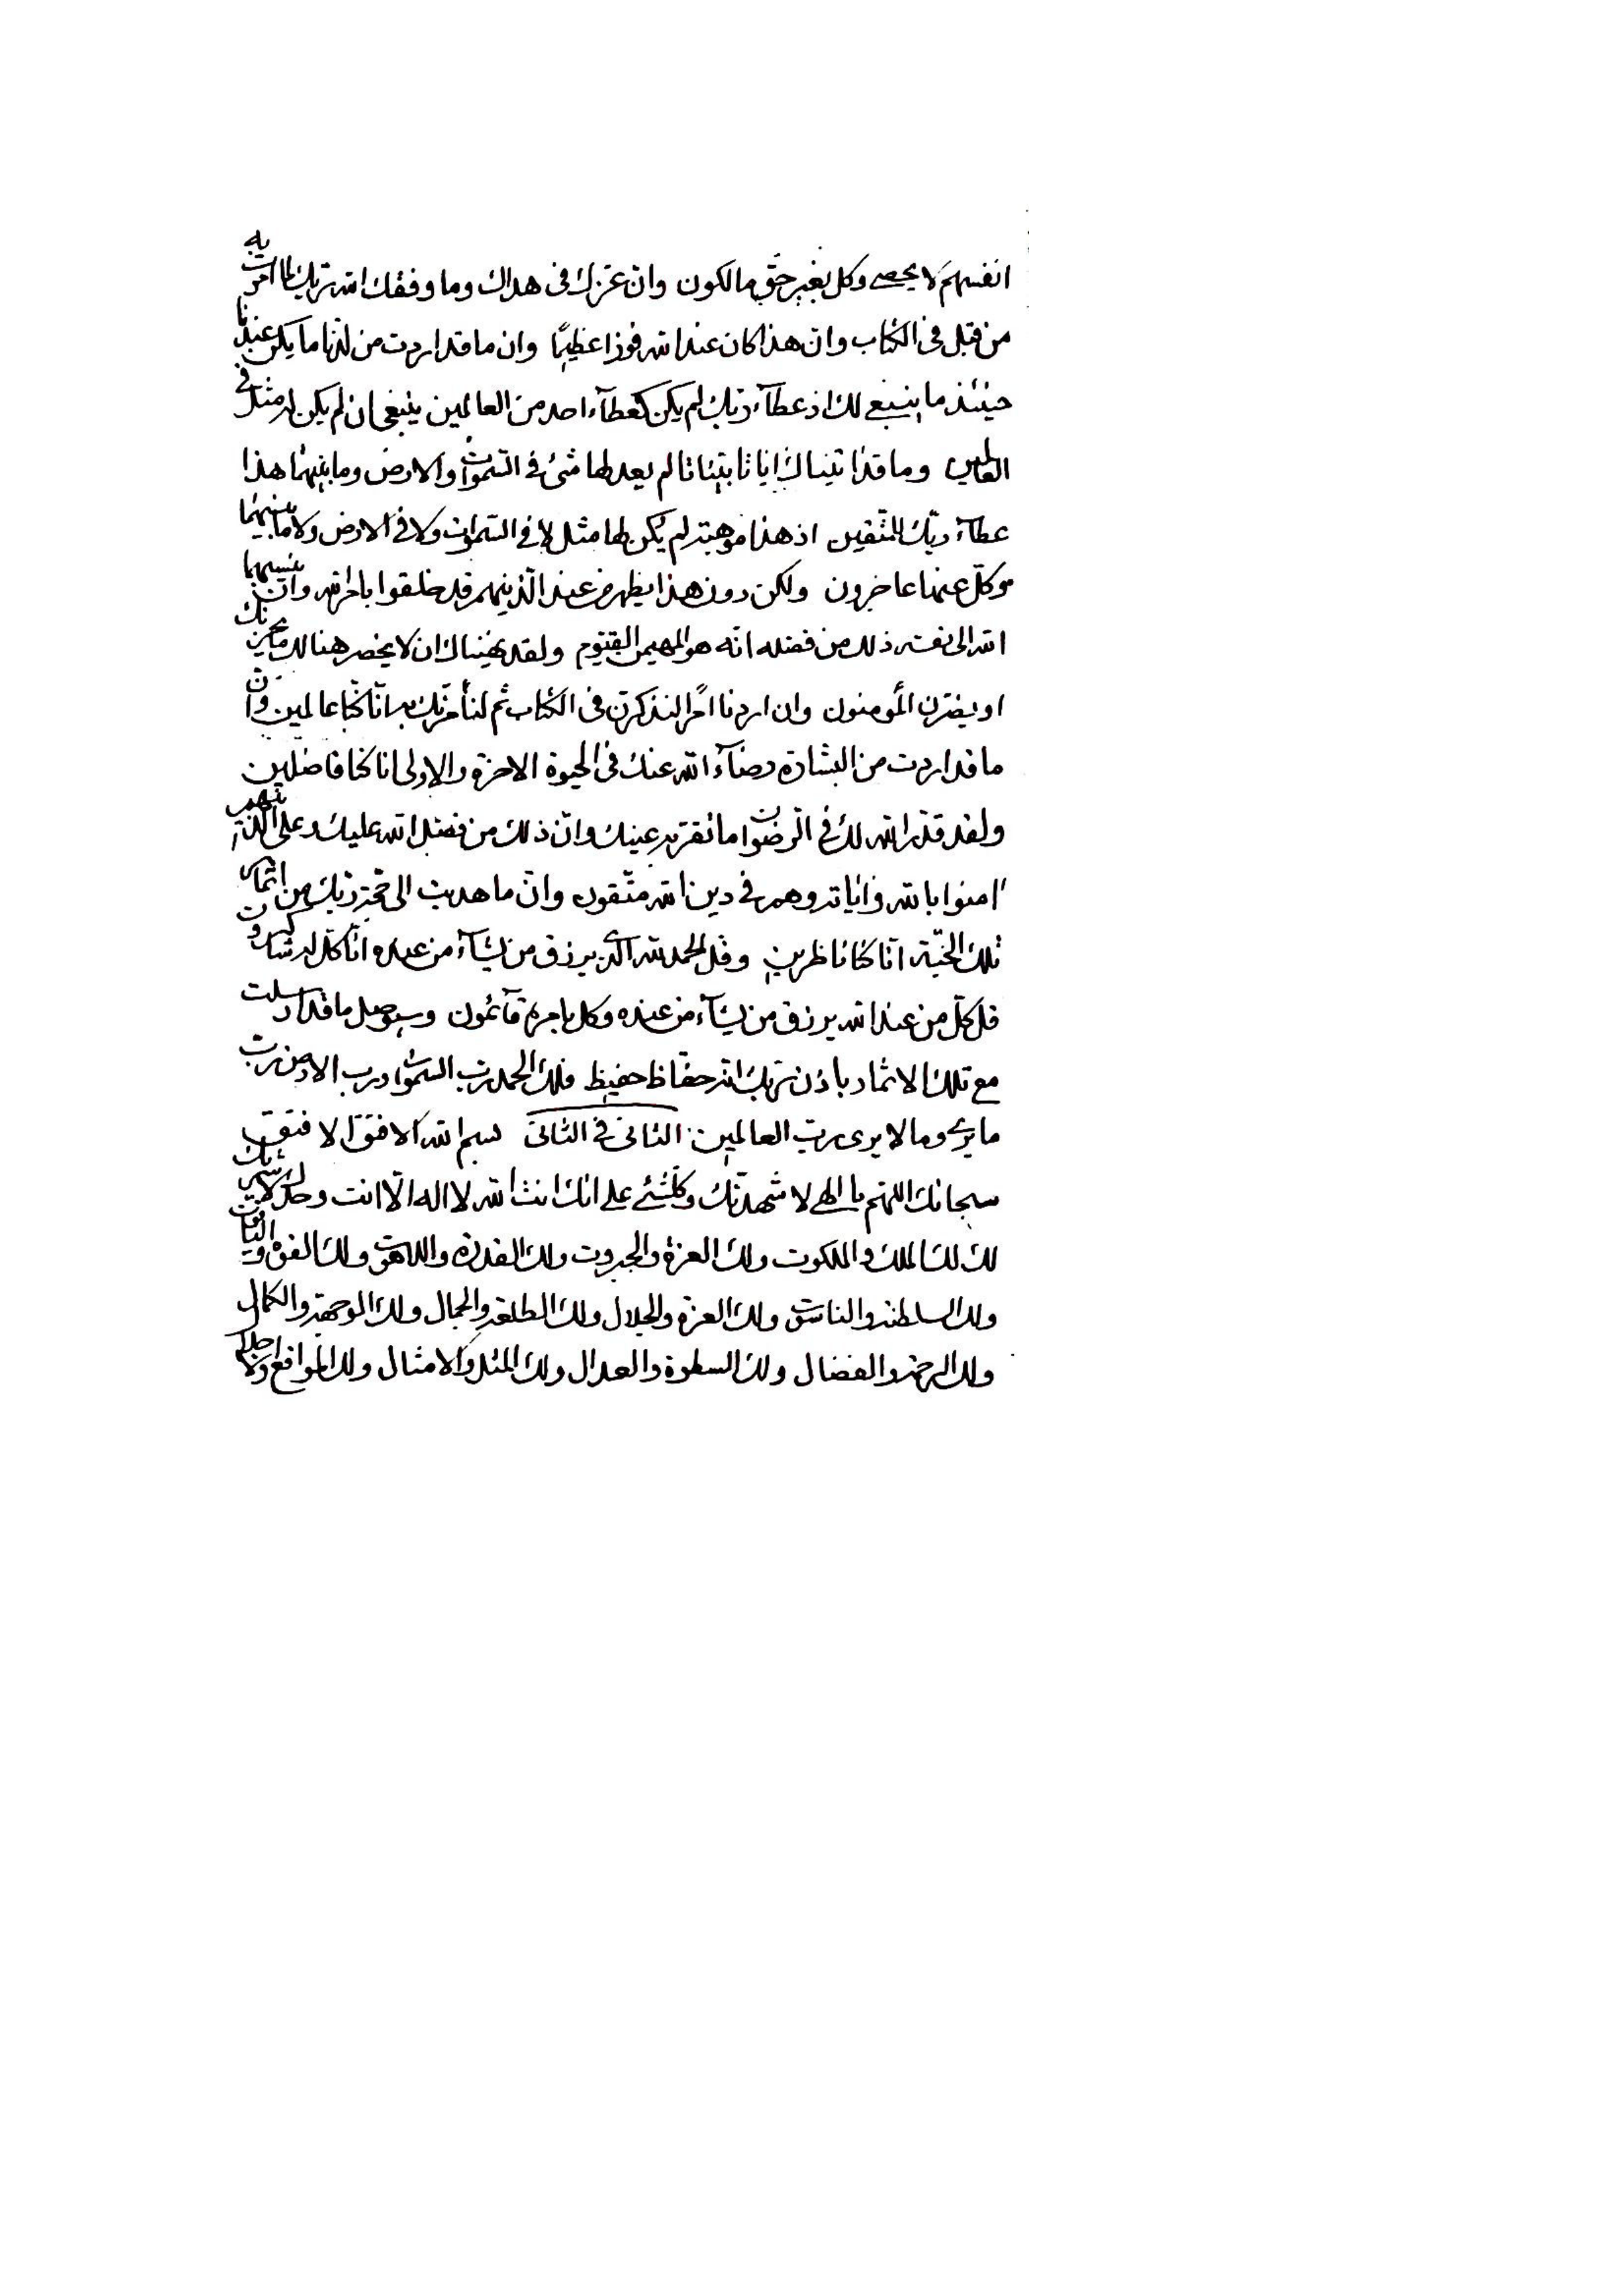 انفسهم لا يحصى وكل بغير حق مالكون وان عزك فى هداك وما وفقك الله ربك لما امرت به
من قبل فى الكتاب وان هذا كان عند الله فوزا عظيمًا وان ما قد اردت من لدنا ما يكن عندنا
حينئذ ما ينبغي لك اذ عطآء ربك لم يكن كعطآء احد من العالمين ينبغى ان لم يكن له مثل فى
العالمين وما قد اتيناك اياتا بيناتا لم يعدلها شئ فى السموات والارض وما بينهما هذا
عطآء ربك للمتقين اذ هذا موهبة لم يكن لها مثل لا فى السموات ولا فى الارض ولا ما بينهما
وكل عنها عاجزون ولكن دون هذا يظهر من عند الذينهم قد خلقوا بامر الله وان ينسبهما
الله الى نفسه ذلك من فضله انه هو المهيمن القيوم ولقد نهيناك ان لا يحضر هنالك ما يحزنك
او يضرن المؤمنون وان اردنا امرًا لنذكرن فى الكتاب ثم لنأمرنك به انا كنا عالمين وان
ما قد اردت من البشارة رضآء الله عنك فى الحيوة الاخرة والاولى انا كنا فاضلين
ولقد قدر الله لك فى الرضوان ما تقر به عينك وان ذلك من فضل الله عليك وعلى الذينهم
امنوا بالله واياته وهم فى دين الله متقون وان ما هديت الى حجة ربك من اثمار
تلك الجنة انا كنا ناظرين وقل الحمد لله الذى يرزق من يشآء من عبده انا كل له شاكرون
قل كل من عند الله يرزق من يشآء من عنده وكل بامره قآئمون وسيوصل ما قد ارسلت
مع تلك الاثمار باذن ربك انه حفاظ حفيظ فلله الحمد رب السموات ورب الارض رب
ما يرى وما لا يرى رب العالمين الثانى فى الثانى بسم الله الافقق الافقق
سبحانك اللهم يا الهى لاشهدنك وكلشئ على انك انت الله لا اله الا انت وحدك لا شريك
لك لك الملك والملكوت ولك العزة والجبروت ولك القدرة واللاهوت ولك القوة والياقوت
ولك السلطنة والناسوت ولك العزة والجلال ولك الطلعة والجمال ولك الوجهة والكمال
ولك الرحمة والفضال ولك السطوة والعدال ولك المثل والامثال ولك المواقع والاجلال